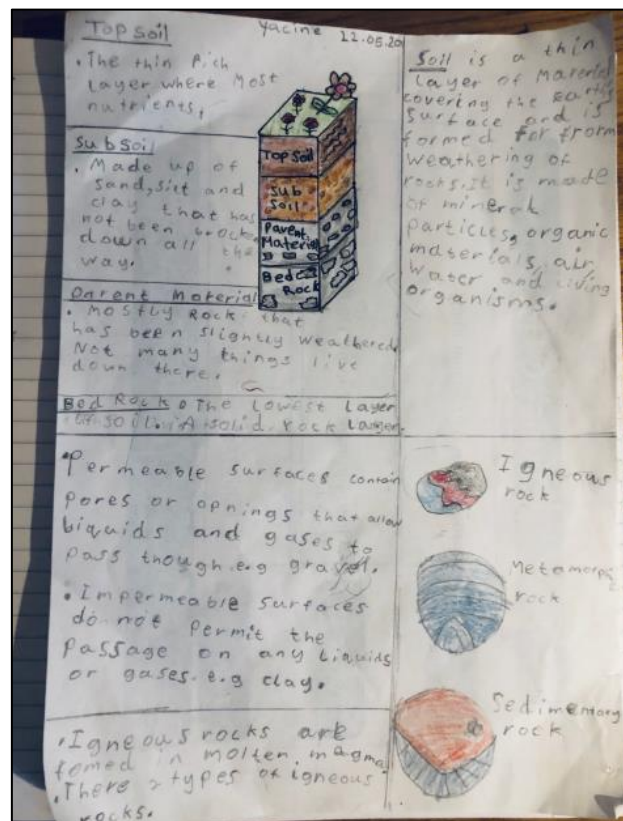 Top soil
Yacine 22.05.20
• The thin Rich
Layer where Most
nutrients,
Sub Soil
• Made up of
Sand, silt and
clay that has
not been brocke
down all the
way.
Top Soil
Sub
Soil
Parent
Material
Bed
Rock
Parent Material
• Mostly Rock that
has been slightly weathered.
Not many things live
down there.
Bed Rock • The Lowest Layer
of soil. A solid rock layer.
Soil is a thin
Layer of Material
covering the Earths
Surface and is
formed for from
weathering of
rocks. It is made
of mineral
particles, organic
materials, air
water and living
organisms.
• Permeable surfaces contain
pores or opnings that allow
liquids and gases to
pass though e.g gravel.
• Impermeable surfaces
do not permit the
passage on any liquids
or gases e.g clay.
• Igneous rocks are
fomed in molten magma
• There 2 types of igneous
rocks.
Igneous
rock
Metamorphic
rock
Sedimentary
rock